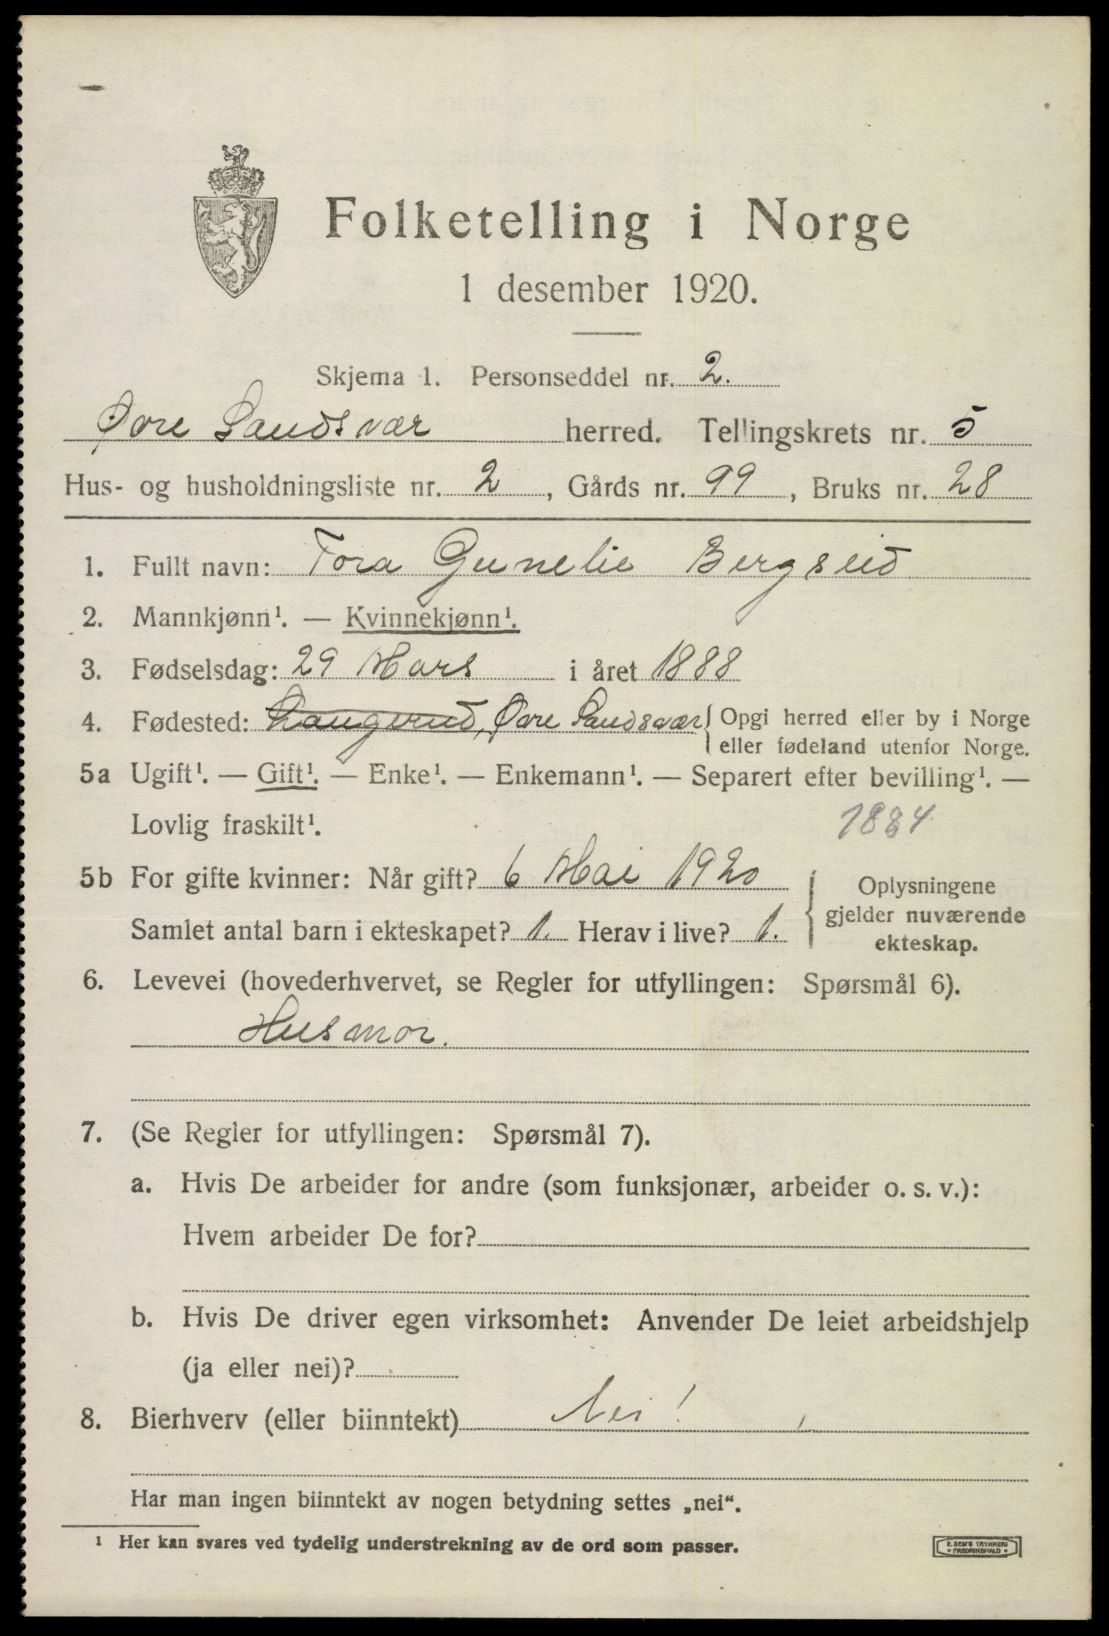 Folketelling i Norge
1 desember 1920.
Skjema 1. Personseddel nr. 2.
Øvre Sandsvær herred. Tellingskrets nr. 5
Hus- og husholdningsliste nr. 2, Gårds nr. 99, Bruks nr. 28
1. Fullt navn: Tora Gunelie Bergseid
2. Mannkjønn¹. — Kvinnekjønn¹.
3. Fødselsdag: 29 Mars i året 1888
4. Fødested: Langerud, Øvre Sandsvær { Opgi herred eller by i Norge
eller fødeland utenfor Norge.
5a Ugift¹. — Gift¹. — Enke¹. — Enkemann¹. — Separert efter bevilling¹. —
Lovlig fraskilt¹. 1884
5b For gifte kvinner: Når gift? 6 Mai 1920 { Oplysningene
gjelder nuværende
Samlet antal barn i ekteskapet? 1. Herav i live? 1. ekteskap.
6. Levevei (hovederhvervet, se Regler for utfyllingen: Spørsmål 6).
Husmor.
7. (Se Regler for utfyllingen: Spørsmål 7).
a. Hvis De arbeider for andre (som funksjonær, arbeider o. s. v.):
Hvem arbeider De for?
b. Hvis De driver egen virksomhet: Anvender De leiet arbeidshjelp
(ja eller nei)?
8. Bierhverv (eller biinntekt) Nei!
Har man ingen biinntekt av nogen betydning settes „nei“.
¹ Her kan svares ved tydelig understrekning av de ord som passer.
E. SEM'S TRYKKERI
• FREDRIKSHALD •